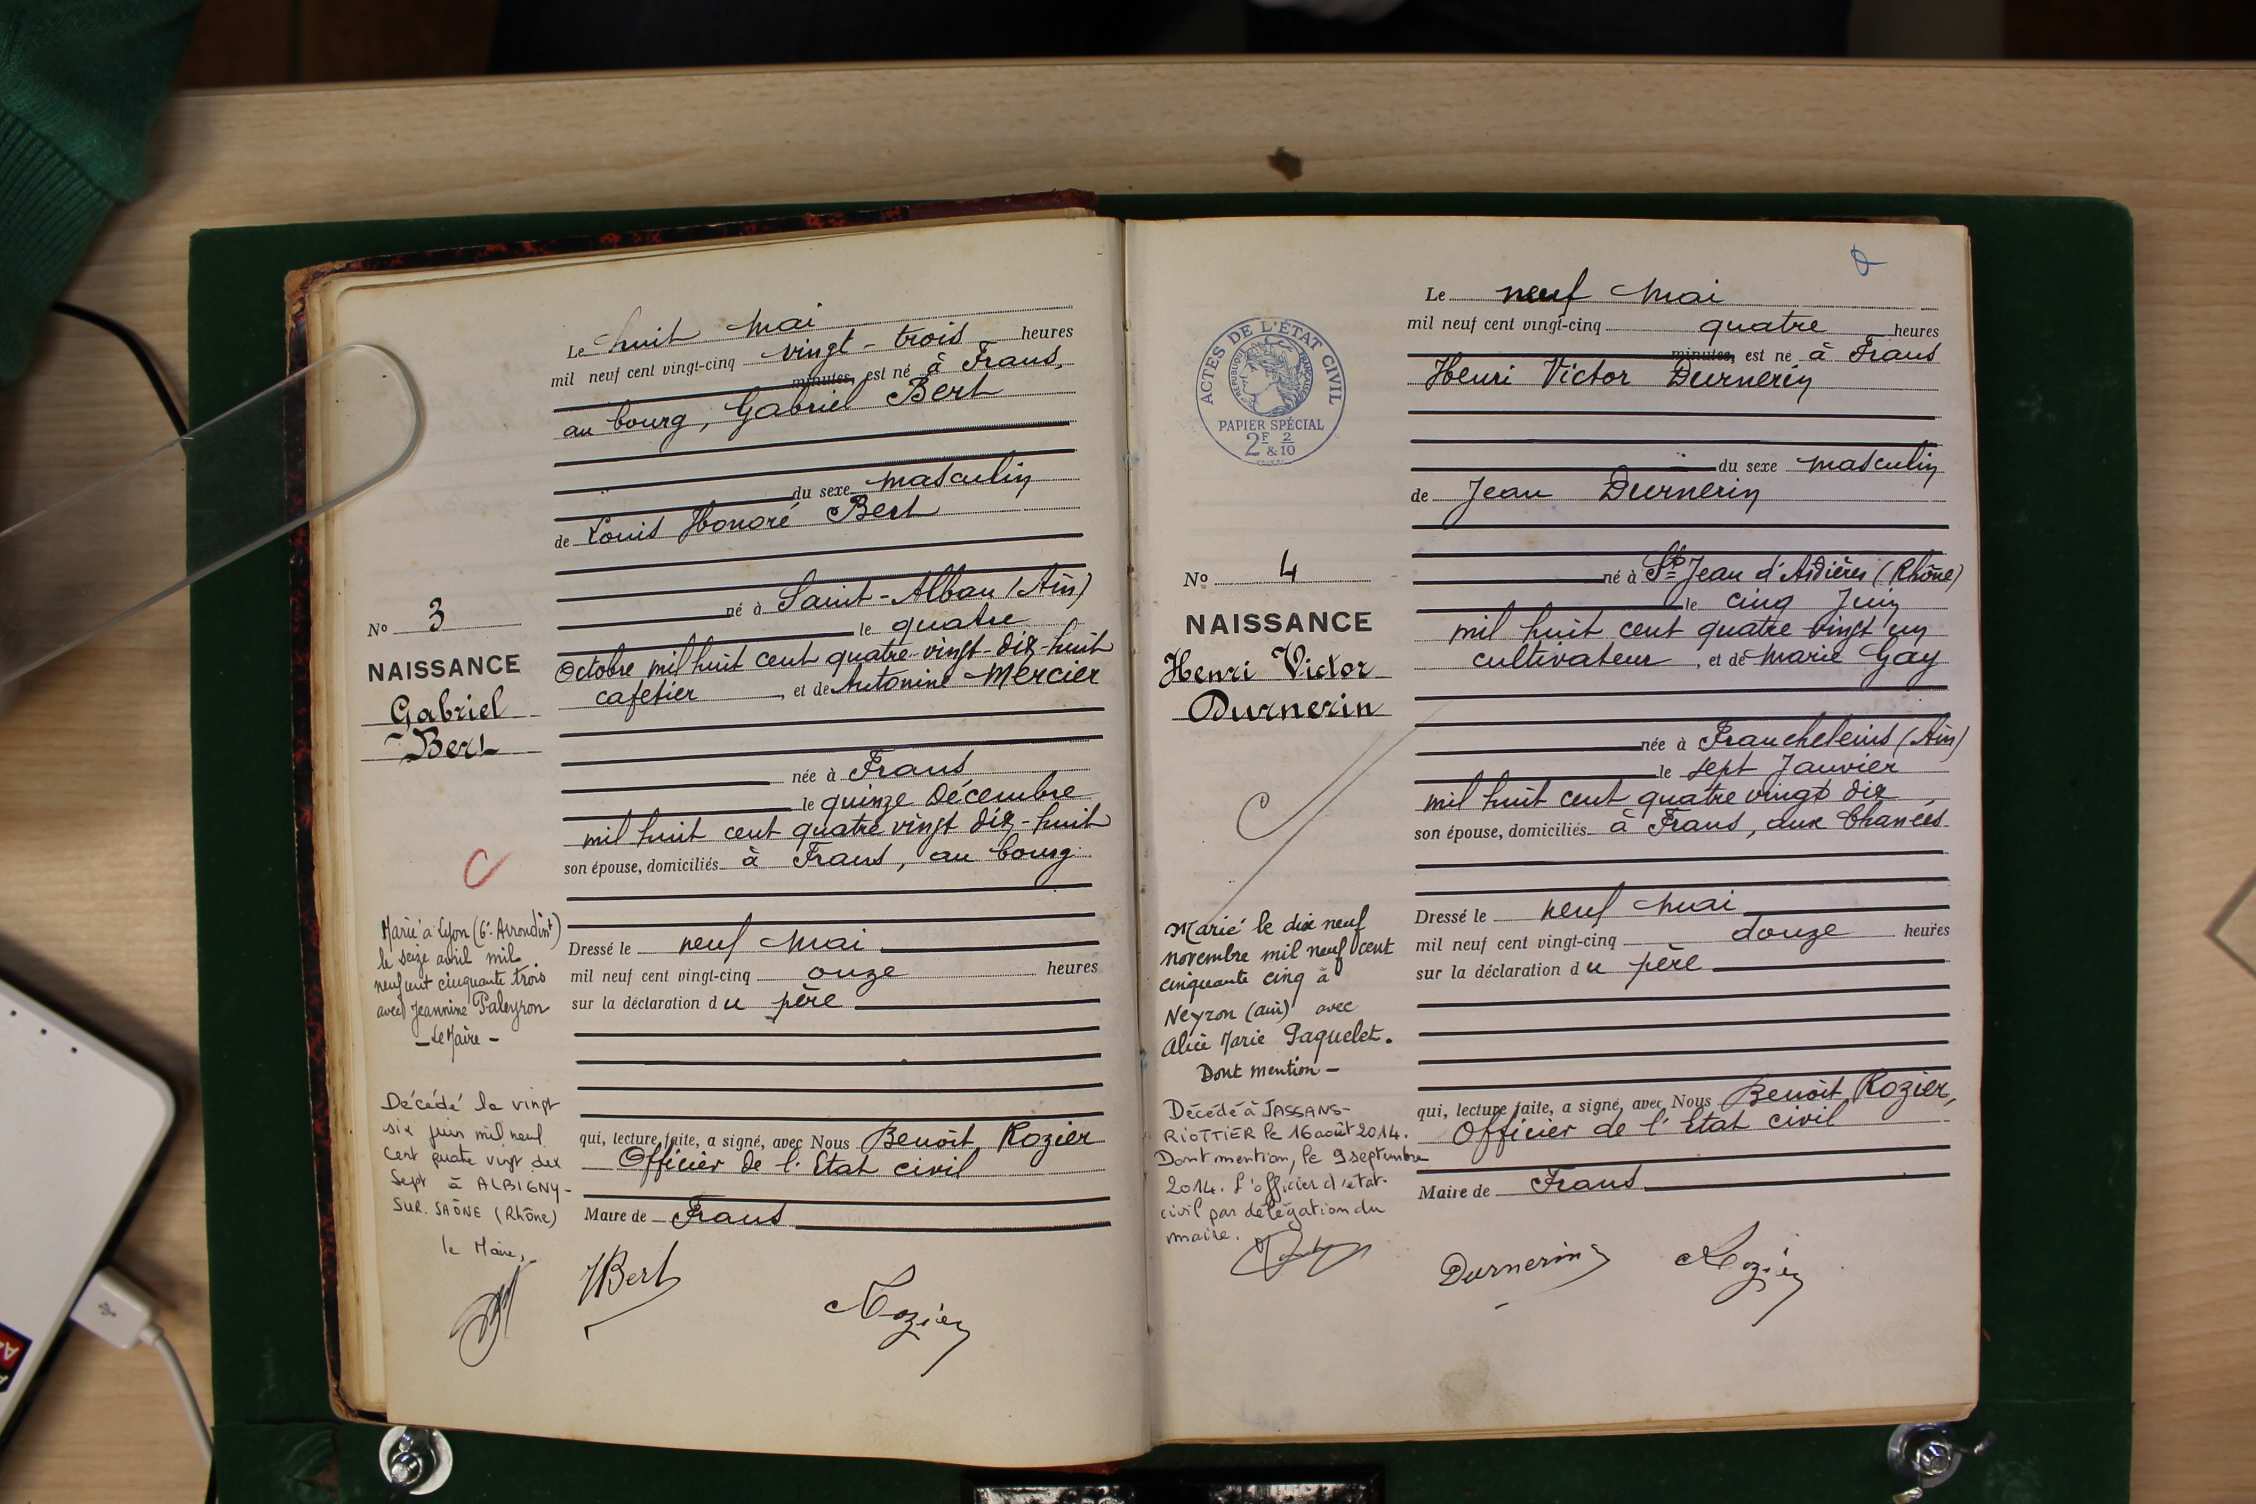 Le huit Mai
mil neuf cent vingt-cinq vingt-trois heures
minutes, est né à Frans,
au bourg, Gabriel Bert
du sexe masculin
de Louis Honoré Bert
né à Saint-Alban (Ain)
le quatre
Octobre mil huit cent quatre-vingt-dix-huit
cafetier, et de Antonine Mercier
née à Frans
le quinze Décembre
mil huit cent quatre vingt dix-huit
son épouse, domiciliés à Frans, au bourg
Dressé le neuf Mai
mil neuf cent vingt-cinq onze heures
sur la déclaration du père
qui, lecture faite, a signé, avec Nous Benoît Rozier
Officier de l'Etat civil
Maire de Frans
HBert
Rozier
No 3
NAISSANCE
Gabriel
Bert
Marié à Lyon (6e Arrondint)
le seize avril mil
neuf cent cinquante trois
avec Jeannine Paleyron
- Le Maire -
Décédé le vingt
six juin mil neuf
cent quatre vingt dix
sept à ALBIGNY-
SUR-SAÔNE (Rhône)
le Maire,
Le neuf Mai
mil neuf cent vingt-cinq quatre heures
minutes, est né à Frans
Henri Victor Durnerin
du sexe masculin
de Jean Durnerin
né à St Jean d'Ardières (Rhône)
le cinq Juin
mil huit cent quatre vingt un
cultivateur, et de Marie Gay
née à Francheleins (Ain)
le sept Janvier
mil huit cent quatre vingt dix
son épouse, domiciliés à Frans, aux Chanées
Dressé le neuf Mai
mil neuf cent vingt-cinq douze heures
sur la déclaration du père
qui, lecture faite, a signé, avec Nous Benoît Rozier,
Officier de l'Etat civil
Maire de Frans
Durnerin
Rozier
ACTES DE L'ÉTAT CIVIL
RÉPUBLIQUE FRANÇAISE
PAPIER SPÉCIAL
2F & 2/10
No 4
NAISSANCE
Henri Victor
Durnerin
Marié le dix neuf
novembre mil neuf cent
cinquante cinq à
Neyron (ain) avec
Alice Marie Paquelet.
Dont mention -
Décédé à JASSANS-
RIOTTIER le 16 août 2014.
Dont mention, le 9 septembre
2014. L'officier d'état-
civil par délégation du
maire.